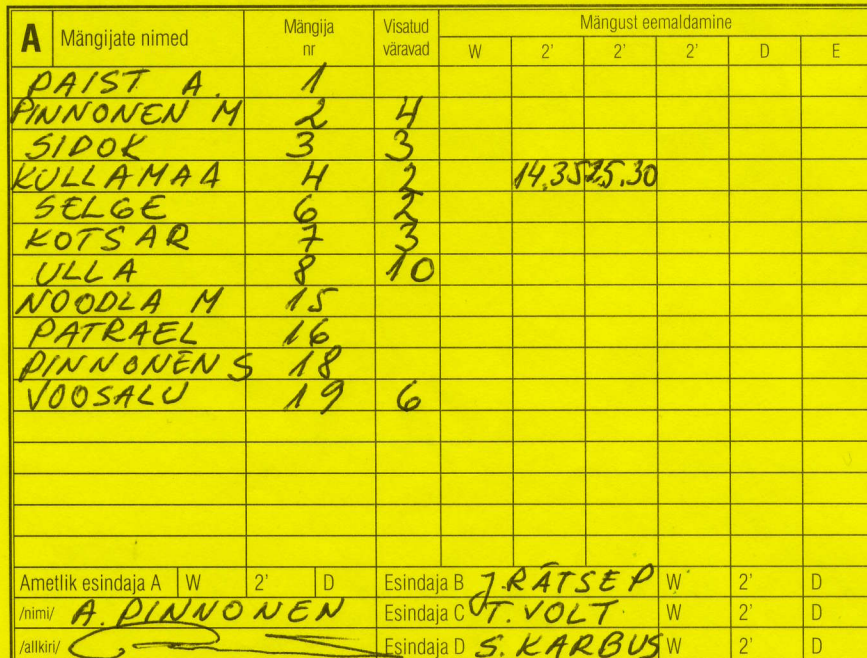 A Mängijate nimed Mängija nr Visatud väravad Mängust eemaldamine
W 2' 2' 2' D E
PAIST A. 1
PINNONEN M 2 4
SIDOK 3 3
KULLAMAA 4 2 14.35 25.30
SELGE 6 2
KOTSAR 7 3
ULLA 8 10
NOODLA M 15
PATRAEL 16
PINNONEN S 18
VOOSALU 19 6
Ametlik esindaja A W 2' D Esindaja B J. RÄTSEP W 2' D
/nimi/ A. PINNONEN Esindaja C T. VOLT W 2' D
/allkiri/ Esindaja D S. KARBUS W 2' D